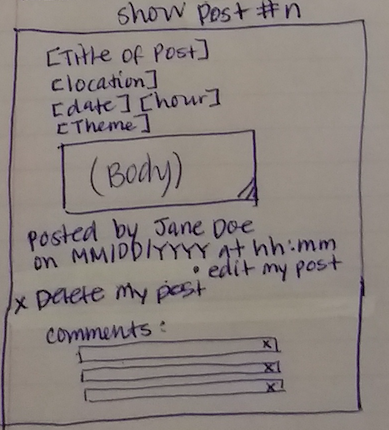 show post #n
[Title of Post]
[location]
[date] [hour]
[Theme]
(Body)
posted by Jane Doe
on MM/DD/YYYY at hh:mm
• edit my post
x Delete my post
comments:
x
x
x